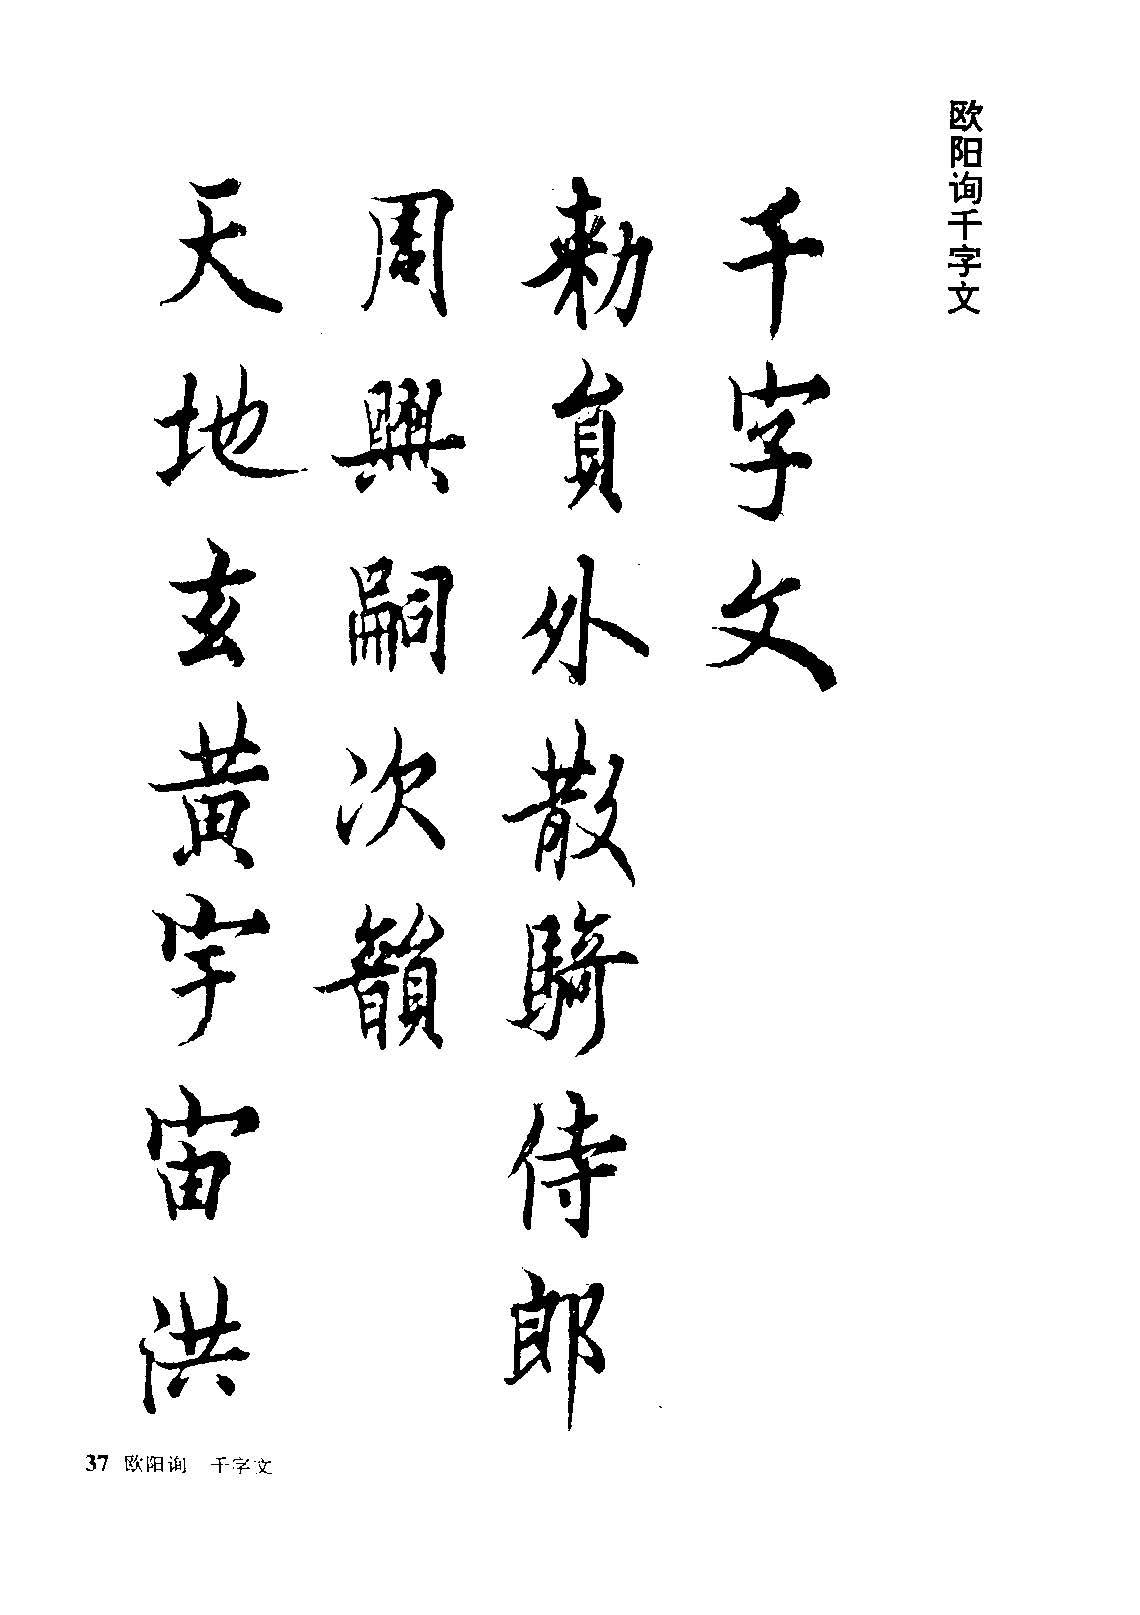 欧阳询千字文
千字文
勑員外散騎侍郎
周興嗣次韻
天地玄黃宇宙洪
37 欧阳询 千字文